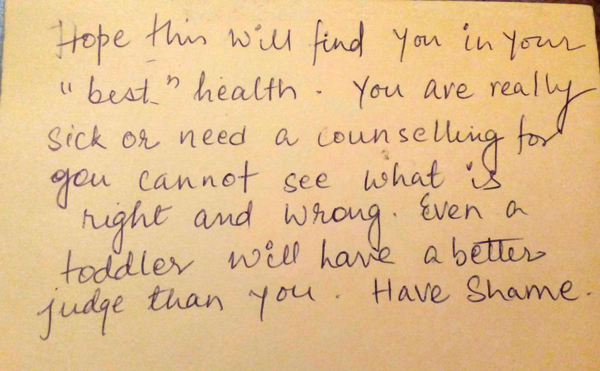 Hope this will find you in your
"best" health. You are really
sick or need a counselling for
you cannot see what is
right and wrong. Even a
toddler will have a better
judge than you. Have Shame.